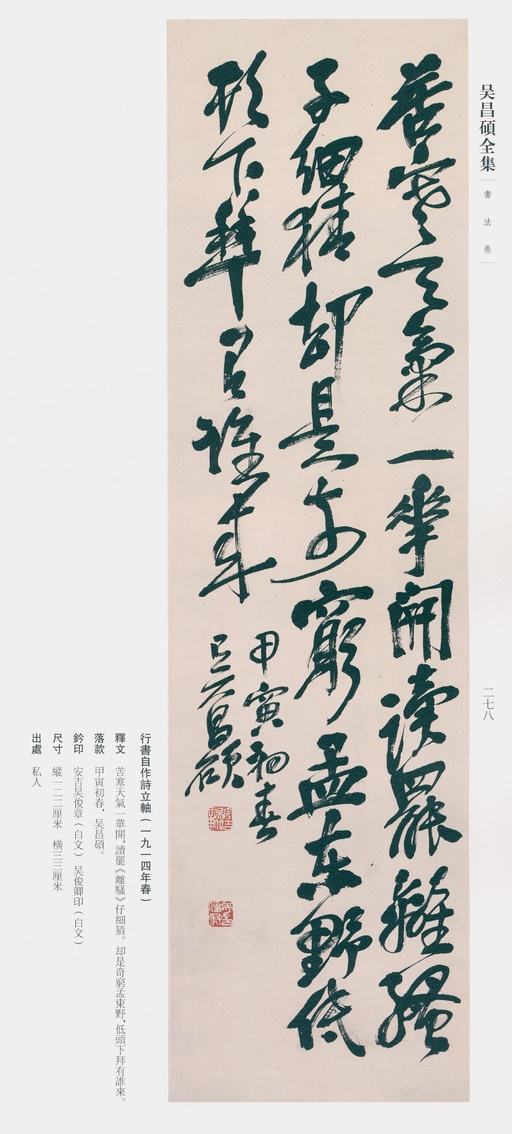 吴昌碩全集 書法卷
二七八
苦寒天氣一華開讀罷離騷
子細猜却是奇窮孟東野低
頭下拜有誰來
甲寅初春
吴昌碩
行書自作詩立軸（一九一四年春）
釋文 苦寒天氣一華開，讀罷《離騷》仔細猜。却是奇窮孟東野，低頭下拜有誰來。
落款 甲寅初春，吴昌碩。
鈐印 安吉吴俊章（白文） 吴俊卿印（白文）
尺寸 縱一二二厘米 橫三三厘米
出處 私人